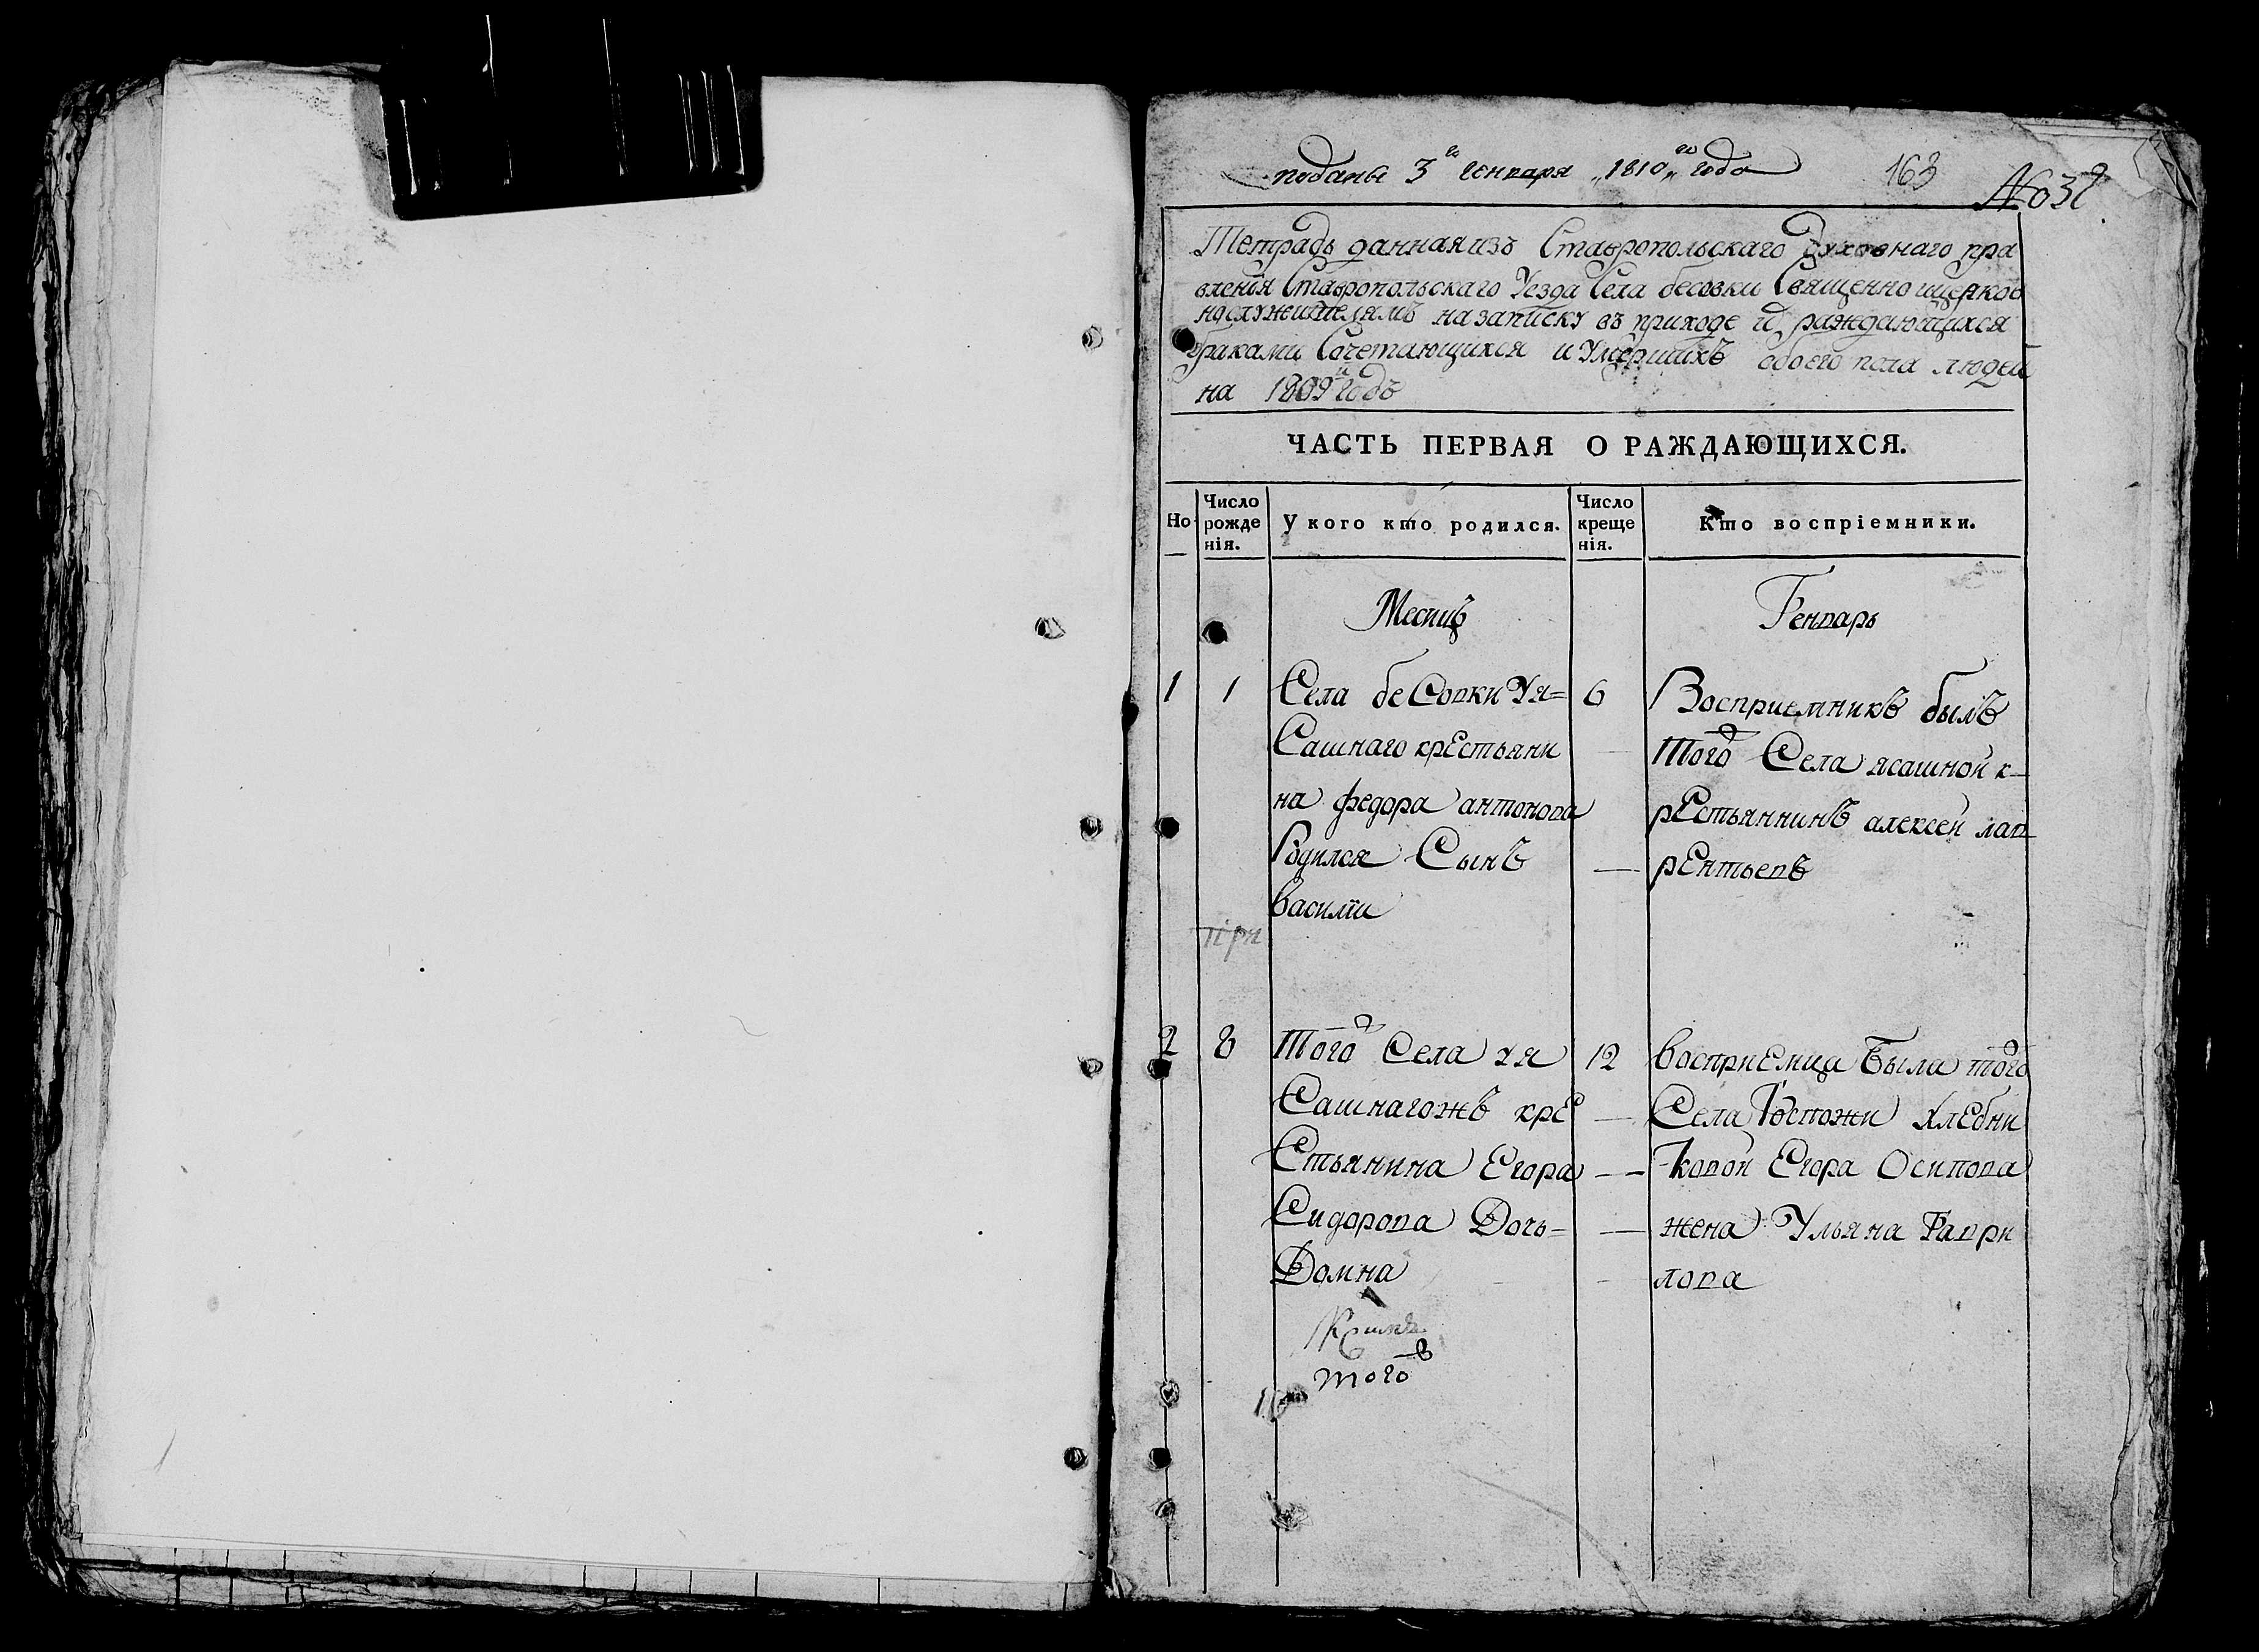 поданы 3го генваря „1810„ го года
163
№ 632
Тетрадь данная изъ Ставропольскаго духовнаго пра
вленія Ставропольскаго уезда села бесовки Священно ицерков
нослужителямъ на записку въ приходе их раждающихся
браками Сочетающихся и умерших обоего пола людей
на 1809й годъ
ЧАСТЬ ПЕРВАЯ О РАЖДАЮЩИХСЯ.
Но
Число рожде нія.
У кого кто родился.
Число креще нія.
Кто воспріемники.
Месицъ
Генварь
1
1
Села беСовки Уя=
Сашнаго крЕстьяни
на федора антонова
Родился Сынъ
василіи
6
Восприемникъ былъ
того Села ясашной к-
рЕстьяннинъ алексеи лав
рЕнтьевъ
при
2
8
того Села уя
Сашнагожъ крЕ
Стьянина Егора
Сидорова Дочь=
Домна
12
восприЕмца была того
Села Госпожи хлЕбни
ковой Егора Осипова
жена Ульяна Гаври
лова
того